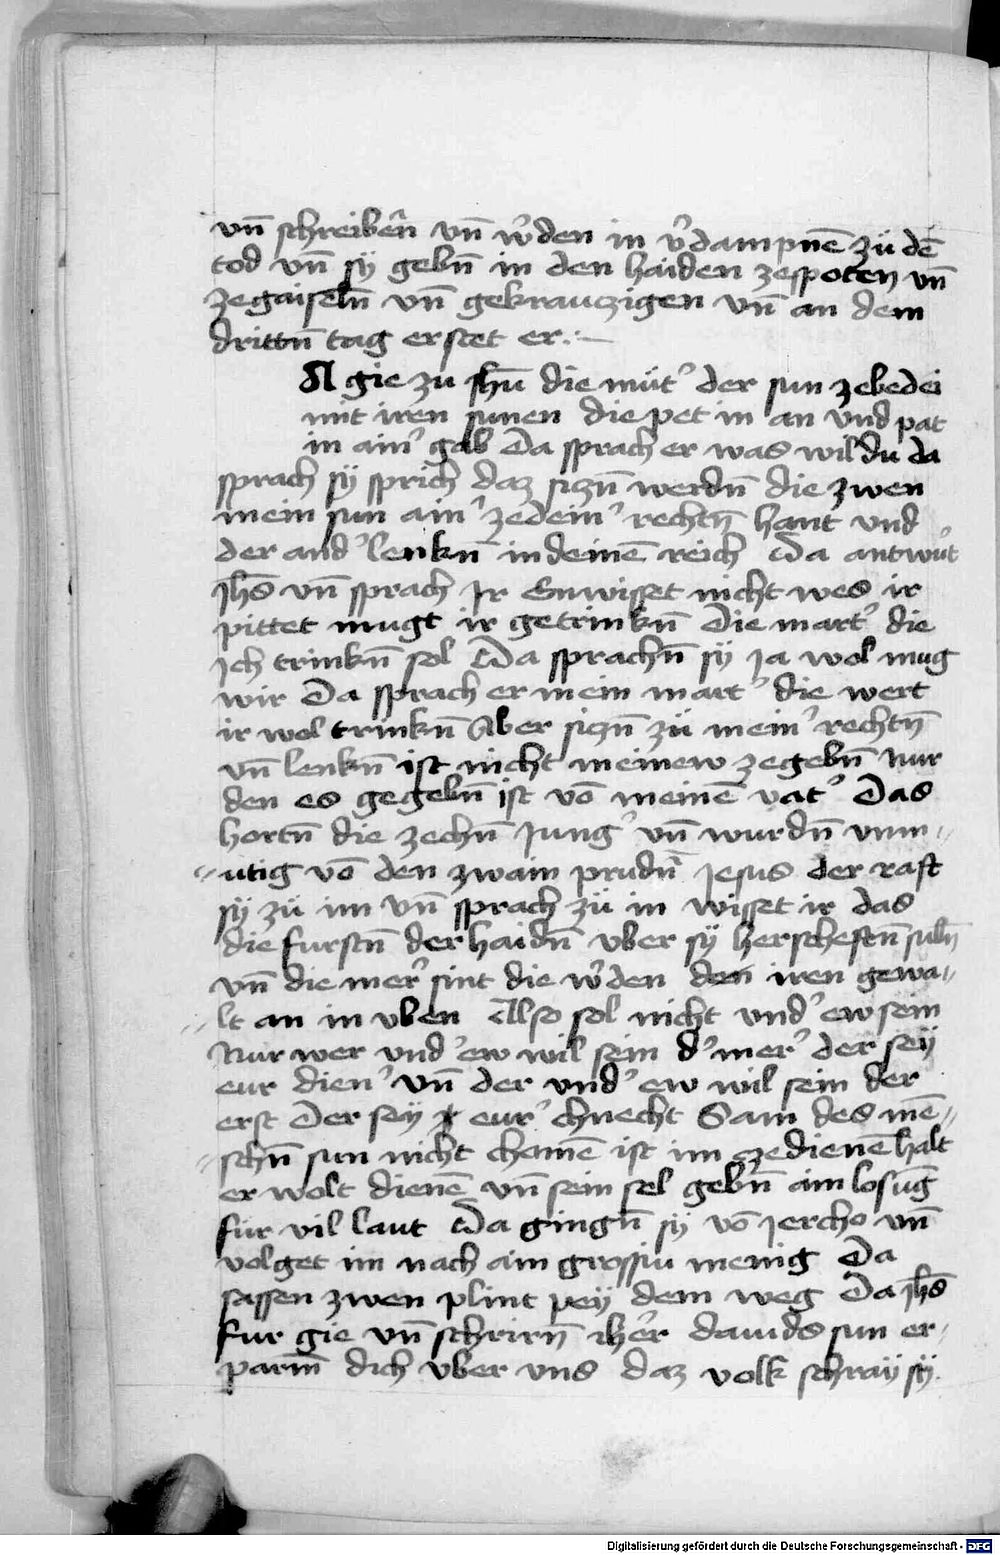 vn̄ schreibern̄ vn̄ w̓den in v̓dampnē zü dē
tod vn̄ sÿ gebn̄ in den haiden zespoten vn̄
zegaiseln̄ vn̄ gekrauczigen vn̄ an dem
drittn̄ tag erstet er
A gie zu ihū die müt̓ der sun zebedei
mit iren sunen die pet in an vnd pat
in ain̓ gab Da sprach er was wildu da
sprach sÿ sprich daz siczn̄ werdn̄ die zwen
mein sun ain̓ zedein̓ rechtn̄ hant vnd
der and̓ lenkn̄ in deinē reich Da antwu̓t
Jhs̄ vn̄ sprach Jr Enwisset nicht wes ir
pittet mugt ir getrinkn̄ Die mart̓ die
Jch trinkn̄ sol Da sprachn̄ sÿ Ja wol mug
wir Da sprach er mein mart̓ die wert
ir wol trinkn̄ Aber siczn̄ zü mein̓ rechtn̄
vn̄ lenkn̄ ist nicht meinew zegebn̄ Nur
den es gegebn̄ ist vō meinē vat̓ Das
hortn̄ die zechn̄ Jung̓ vn̄ wurdn̄ vnm〃
〃utig vō den zwain prudn̄ Jesus der raft
sÿ zü im vn̄ sprach zü in wisset ir das
die furstn̄ der haidn̄ vber sÿ herscheftn̄ suln̄
vn̄ die mer̓ sint die w̓den den iren gewa〃
〃lt an in vben Also sol nicht vnd̓ ew sein
Nur wer vnd̓ ew wil sein d̓ mer̓ der seÿ
eur dien̓ vn̄ der vnd̓ ew wil sein der
erst Der seÿ eur̓ chnecht Sam des mē〃
〃schn̄ sun nicht chomē ist im zedienē halt
er wolt dienē vn̄ sein sel gebn̄ aim losūg
für vil laut Da gingn̄ sÿ vō Jercho vn̄
volget im nach ain grossiu menig Da
sassen zwen plint peÿ dem weg Da Jhs̄
fur gie vn̄ schrirn̄ Jher̓ dauids sun er〃
parm̄ dich vber vns daz volk schraÿ sÿ
Digitalisierung gefördert durch die Deutsche Forschungsgemeinschaft - DFG